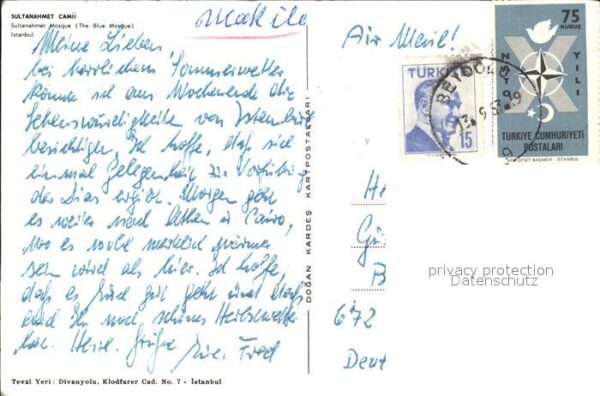 SULTANAHMET CAMİİ
Sultanahmet Mosque (The Blue Mosque)
İstanbul
Air Mail!
Meine Lieben,
bei herrlichem Sommerwetter
konnte ich am Wochenende die
Sehenswürdigkeiten von Istanbul
besichtigen. Ich hoffe, daß sich
einmal Gelegenheit zur Vorführung
der Dias ergibt. Morgen geht
es weiter nach Athen u. Cairo,
wo es wohl merklich wärmer
sein wird als hier. Ich hoffe,
daß es Euch gut geht und daß
Ihr noch schönes Herbstwetter
habt. Herzl. Grüße
Euer Fred
DOĞAN KARDEŞ KARTPOSTALLARI
Tevzi Yeri: Divanyolu, Klodfarer Cad. No. 7 - İstanbul
TÜRKİYE
15
BEYOĞLU
75
KURUŞ
NATO
YILI
TÜRKİYE CUMHURİYETİ
POSTALARI
He
Gü
B
672
Deut
privacy protection
Datenschutz